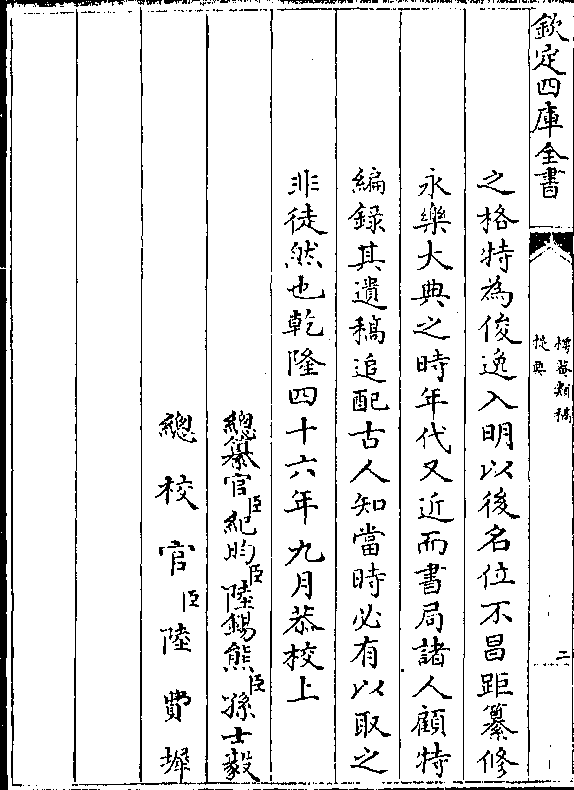 欽定四庫全書
樗菴類稿
提要
二
之格特為俊逸入明以後名位不昌距纂修
永樂大典之時年代又近而書局諸人顧特
編錄其遺稿追配古人知當時必有以取之
非徒然也乾隆四十六年九月恭校上
總纂官臣紀昀臣陸錫熊臣孫士毅
總校官臣陸費墀